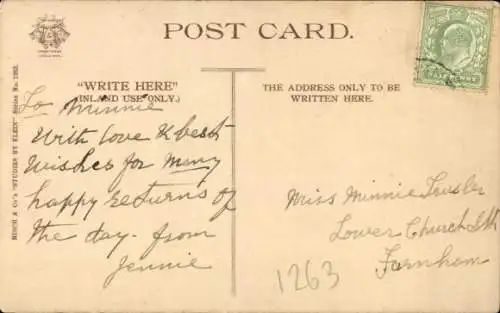 POST CARD.
"WRITE HERE"
(INLAND USE ONLY.)
To Minnie
With love & best
Wishes for Many
happy returns of
the day. from
Jennie
THE ADDRESS ONLY TO BE
WRITTEN HERE.
Miss Minnie
Lower Church
Farnham
1263
"STUDIES BY KLEIN" Series No.
HALFPENNY